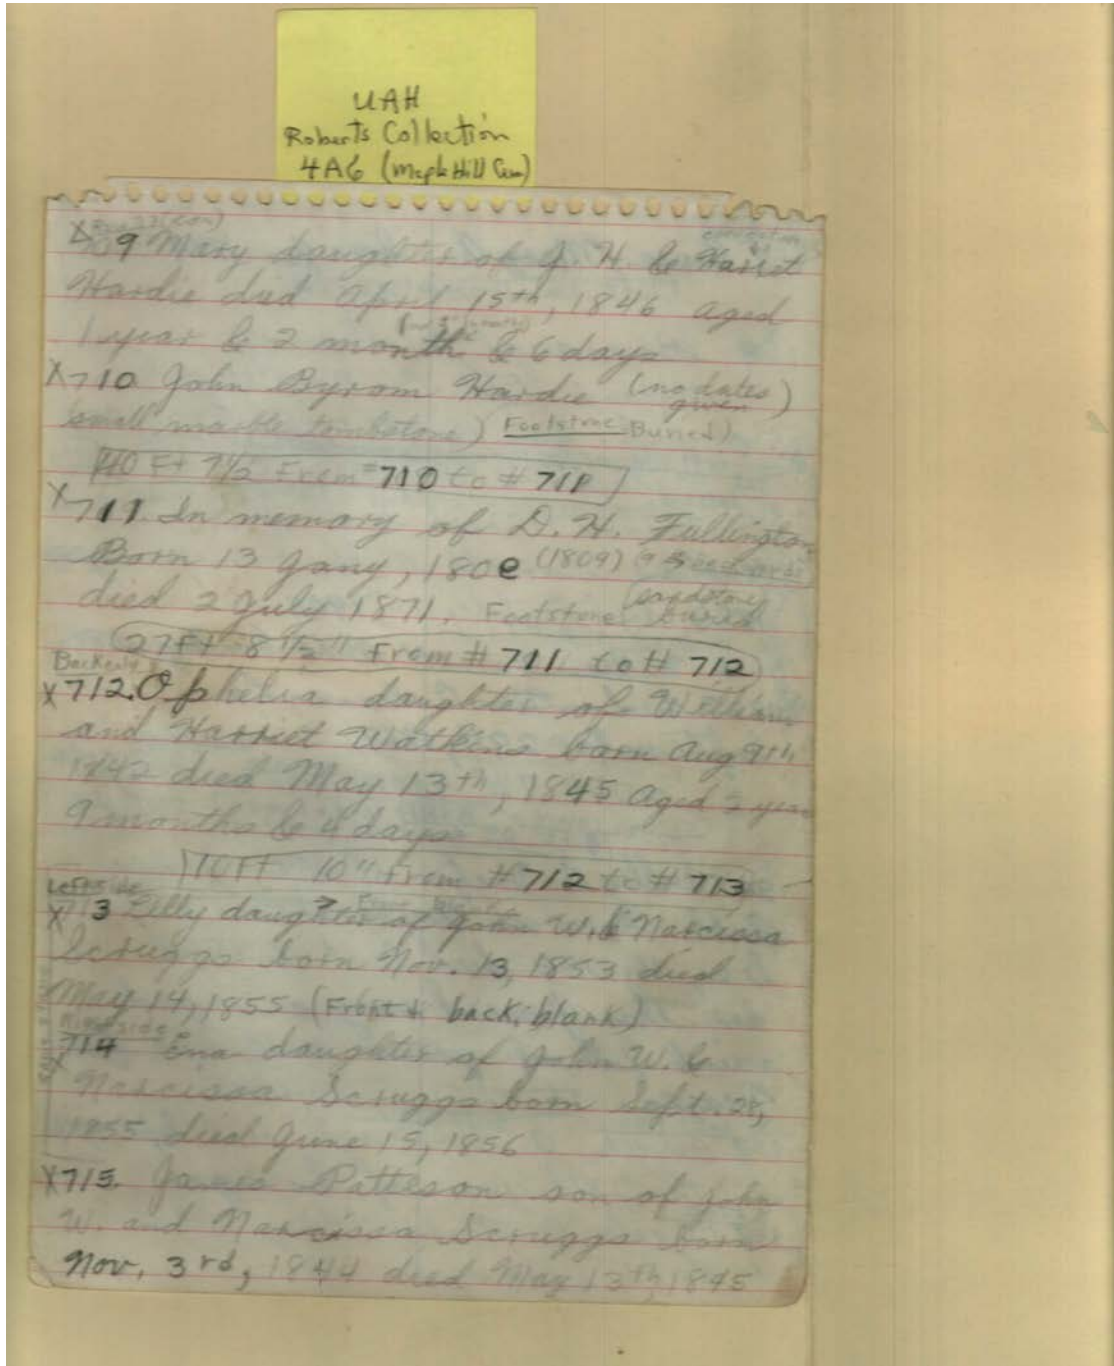 UAH
Roberts Collection
4A6 (Maple Hill Cem)
X709 Mary daughter of J. H. & Harriet
Hardie died April 15th, 1846 aged
1 year & 2 month & 6 days
X710 John Byrom Hardie (no dates given)
small marble tombstone) Footstone Buried)
40 Ft 7 1/2 From #710 to # 711
X711. In memory of D. H. Fullington
Born 13 Jany, 180e (1809) (9 is backwards)
died 2 July 1871. Footstone buried
27 Ft 8 1/2" From # 711 to # 712
X712. Ophelia daughter of William
and Harriet Watkins born Aug 9th
1842 died May 13th, 1845 Aged 2 year
9 months & 4 days
10 Ft 10" From # 712 to # 713
Left side
X713 Lilly daughter of John W. & Narcissa
Scruggs born Nov. 13, 1853 died
May 14, 1855 (Front & back, blank)
Right side
X714 Ena daughter of John W. &
Narcissa Scruggs born Sept. 28,
1855 died June 15, 1856
X715. James Patteson son of John
W. and Narcissa Scruggs born
Nov. 3rd, 1844 died May 13th, 1845